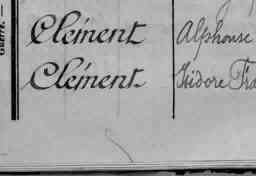 Guerre. —
Clément Alphonse
Clément Isidore Fra